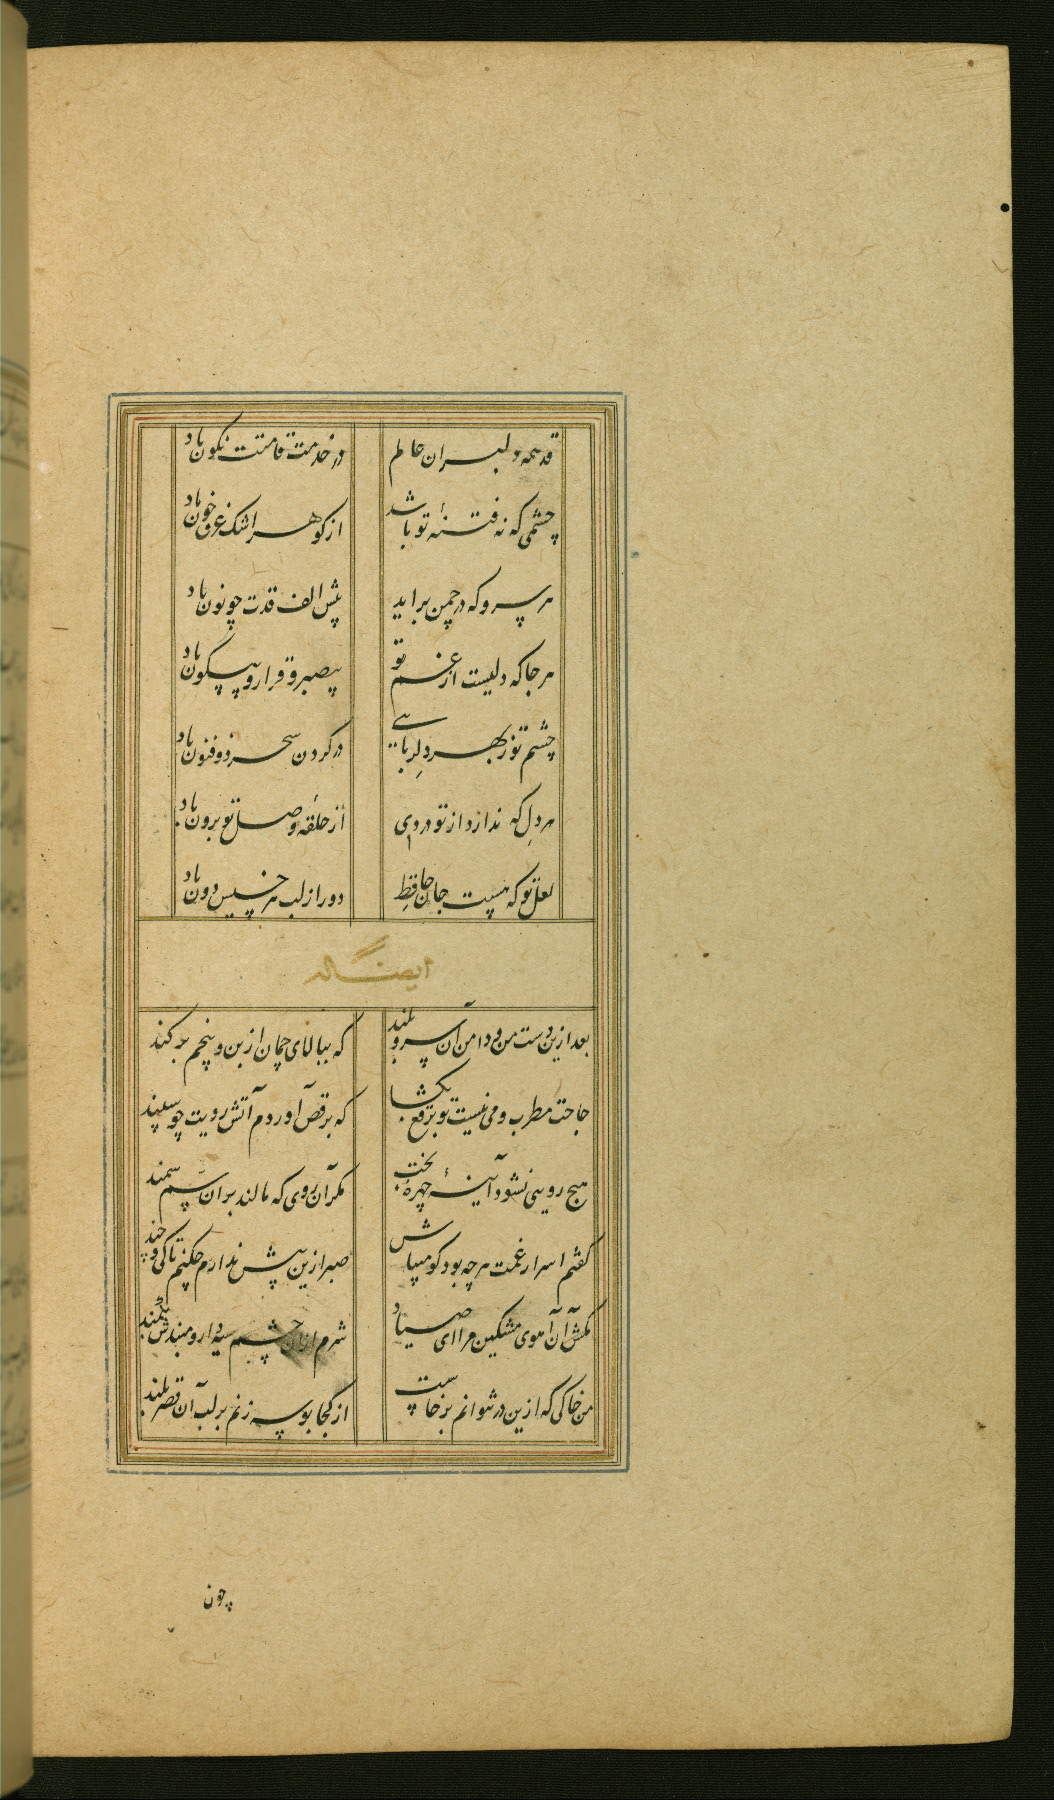 قد همه دلبران عالم در خدمت قامتت نگون باد
چشمی که نه فتنهٔ تو باشد از کوهر اشک غرق خون باد
هر سرو که در چمن براید پیش الف قدت چو نون باد
هر جا که دلیست از غم تو بیصبر و قرار و بیسکون باد
چشم تو ز بهر دلربایی در کردن سحر ذوفنون باد
هر دل که ندارد از تو دردی از حلقهٔ وصل تو برون باد
لعل تو که هست جان حافظ دور از لب هر خسیس دون باد
ایضا له
بعد ازین دست من و دامن آن سرو بلند که ببالای چمان از بن و بیخم برکند
حاجت مطرب و می نیست تو برقع بکشا که برقص آوردم آتش رویت چو سپند
هیچ رویی نشود آینهٔ چهرهٔ بخت مکر آن روی که مالند بران سم سمند
کفتم اسرار غمت هر چه بود کو میباش صبر ازین بیش ندارم چکنم تا کی و چند
مکش آن آهوی مشکین مرا ای صیاد شرم از آن چشم سیه دار و مبندش بکمند
من خاکی که ازین در نتوانم برخاست از کجا بوسه زنم بر لب آن قصر بلند
چون